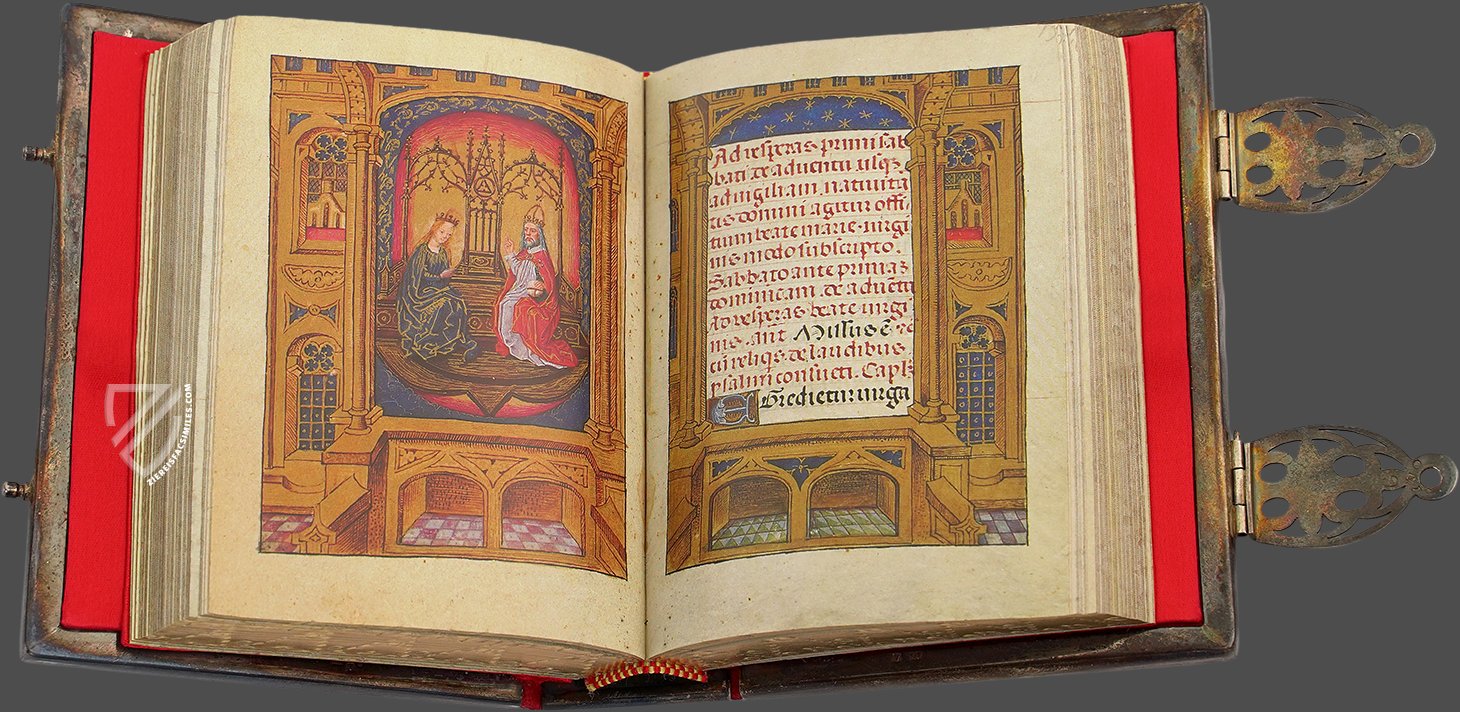 Ad vesperas primi sab
bati de adventu usq3
ad vigiliam nativita
tis domini agitur offi
tium beate marie virgi
nis modo subscripto.
Sabbato ante primas
dominicam de advēta
Ad vesperas beate virgi
nis. ant Missus ē
cū reliqs de laudibus
psalmi consueti. Capl3
Egredietur virga
ZIEREISFACSIMILES.COM